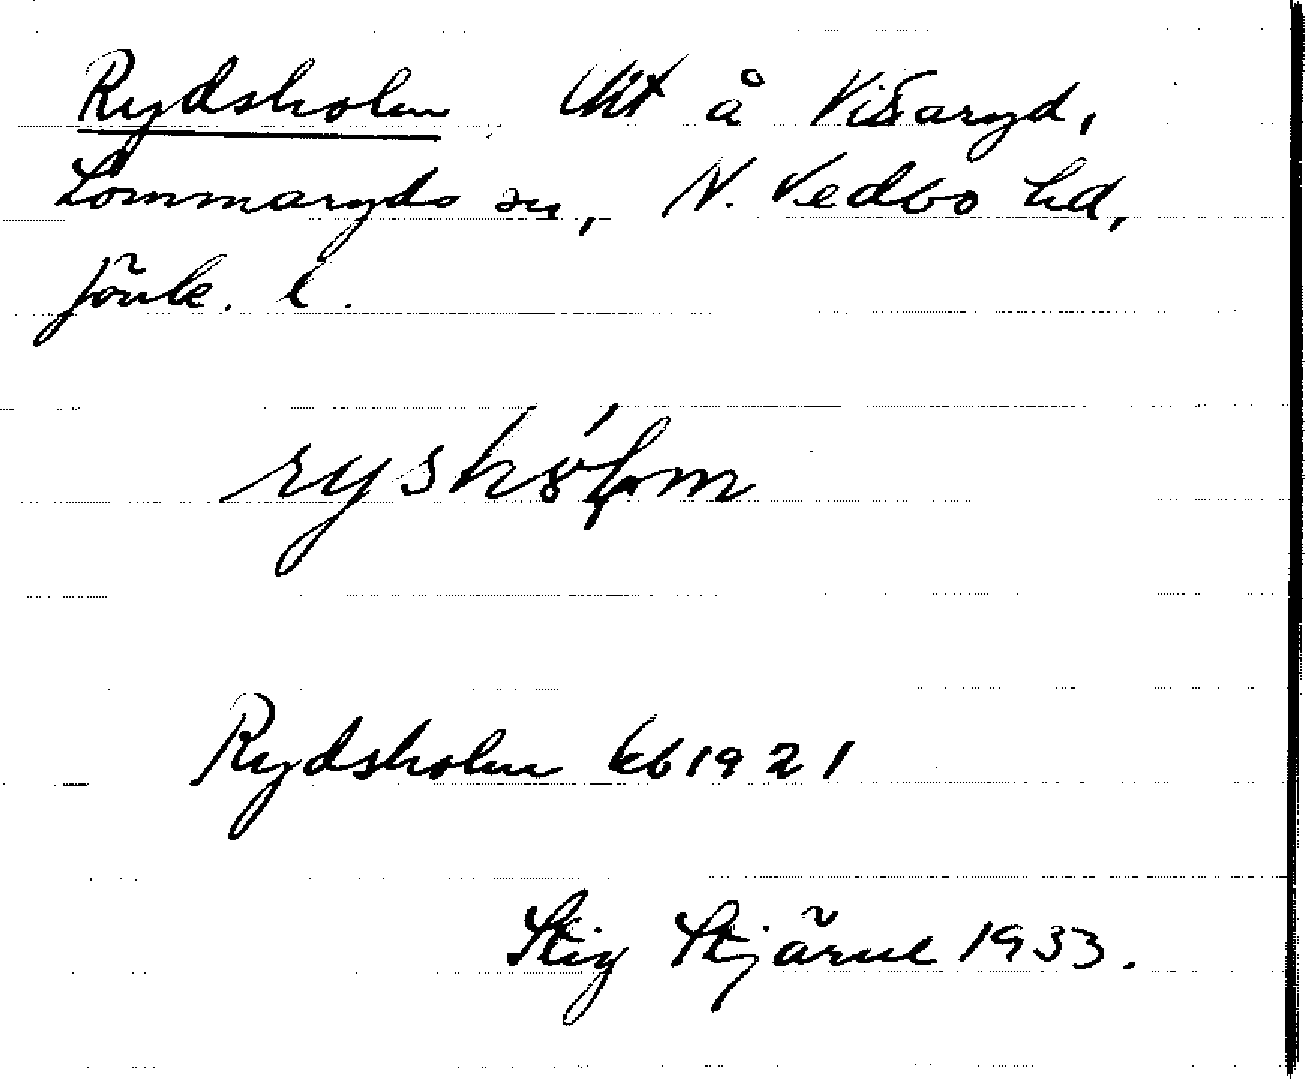 Rydsholm, lht å Visaryd,
Lommaryds sn, N. Vedbo hd,
Jönk. l.
ryshólm
Rydsholm kb 1921
Stig Stjärne 1933.